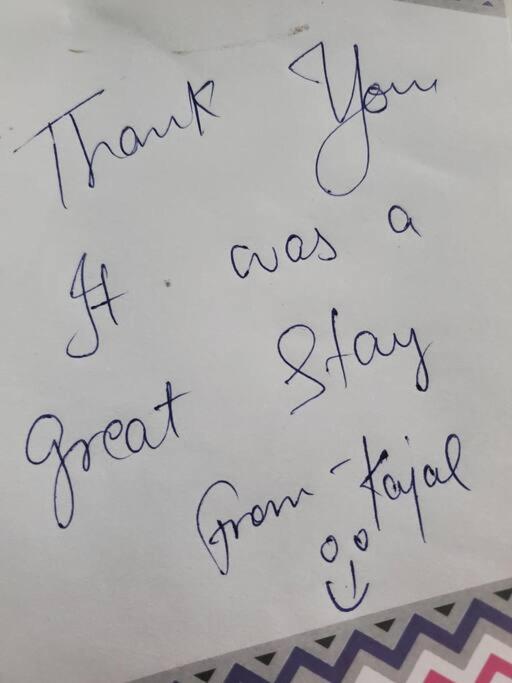 Thank You
It was a
Great Stay
From - Kajal